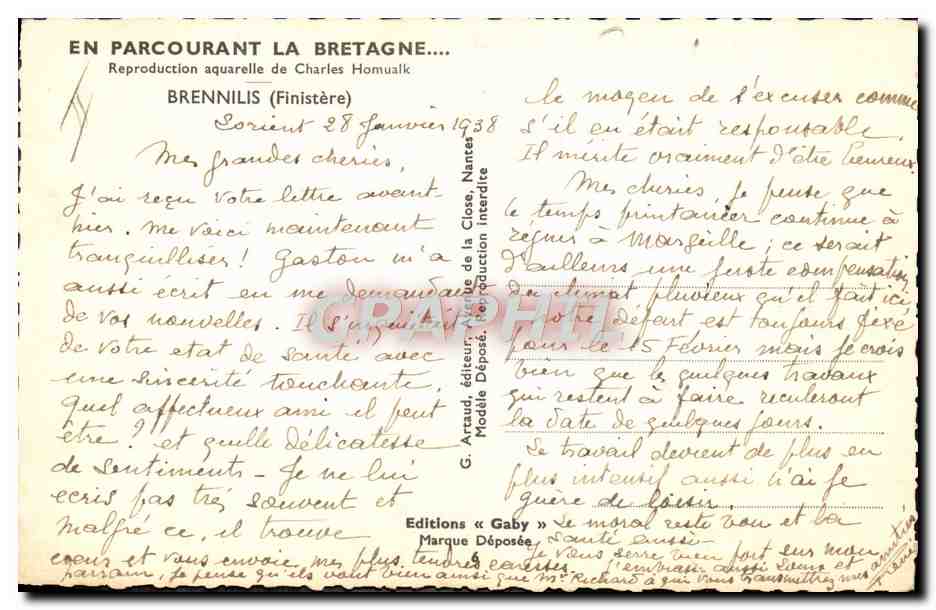 EN PARCOURANT LA BRETAGNE....
Reproduction aquarelle de Charles Homualk
BRENNILIS (Finistère)
Lorient 28 Janvier 1938
Mes grandes cheries,
J'ai reçu votre lettre avant-
hier. me voici maintenant
tranquilliser! Gaston m'a
aussi écrit en me demandant
de vos nouvelles. Il s'inquiétait
de votre etat de santé avec
une sincerité touchante.
Quel affectueux ami il peut
être? et quelle délicatesse
de sentiments - Je ne lui
ecris pas très souvent et
malgré ce, il trouve
le moyen de s'excuser comme
s'il en était responsable.
Il mérite vraiment d'être heureux.
Mes cheries, je pense que
le temps printanier continue à
regner à Marseille; ce serait
d'ailleurs une juste compensation
du climat pluvieux qu'il fait ici
Notre départ est toujours fixé
pour le 15 Février mais je crois
bien que les quelques travaux
qui restent à faire reculeront
la date de quelques jours.
Le travail devient de plus en
plus intensif aussi n'ai je
guère de loisir.
Le moral reste bon et la
santé aussi-
Je vous serre bien fort sur mon
coeur et vous envoie mes plus tendres caresses. J'embrasse aussi et
parrain, je pense qu'ils vont bien ainsi que Mr Richard à qui vous transmettrez mes amitiés
G. Artaud, éditeur, Avenue de la Close, Nantes
Modèle Déposé. Reproduction interdite
Editions « Gaby »
Marque Déposée
6
CPAPHIL